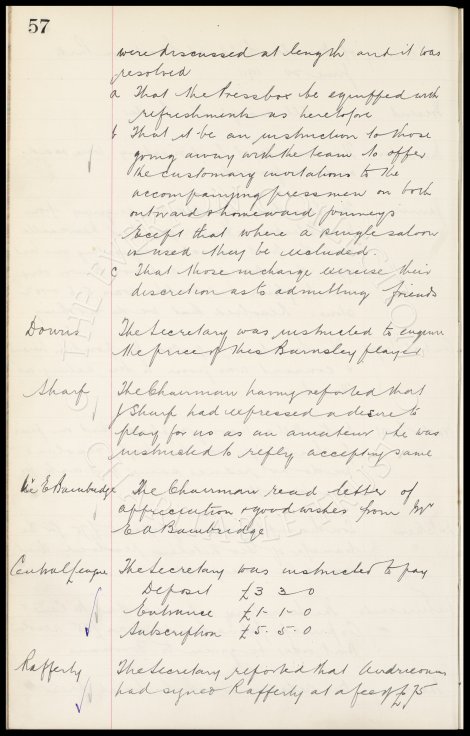 57
were discussed at length and it was
resolved
a That the Pressbox be equipped with
refreshments as heretofore
b That it be an instruction to those
going away with the team to offer
the customary invitations to the
accompanying pressmen on both
outward & homeward journeys
Except that where a single saloon
is used they be excluded.
c That those in charge exercise their
discretion as to admitting friends
Downs The Secretary was instructed to enquire
the price of this Barnsley player
Sharp The Chairman having reported that
J Sharp had expressed a desire to
play for us as an amateur he was
instructed to reply accepting same
E Bainbridge The Chairman read letter of
appreciation & good wishes from Mr
E A Bainbridge
Central League The Secretary was instructed to pay
Deposit £3 3 0
Entrance £1-1-0
Subscription £5.5.0
Rafferty The Secretary reported that Airdrieonians
had signed Rafferty at a fee of £75